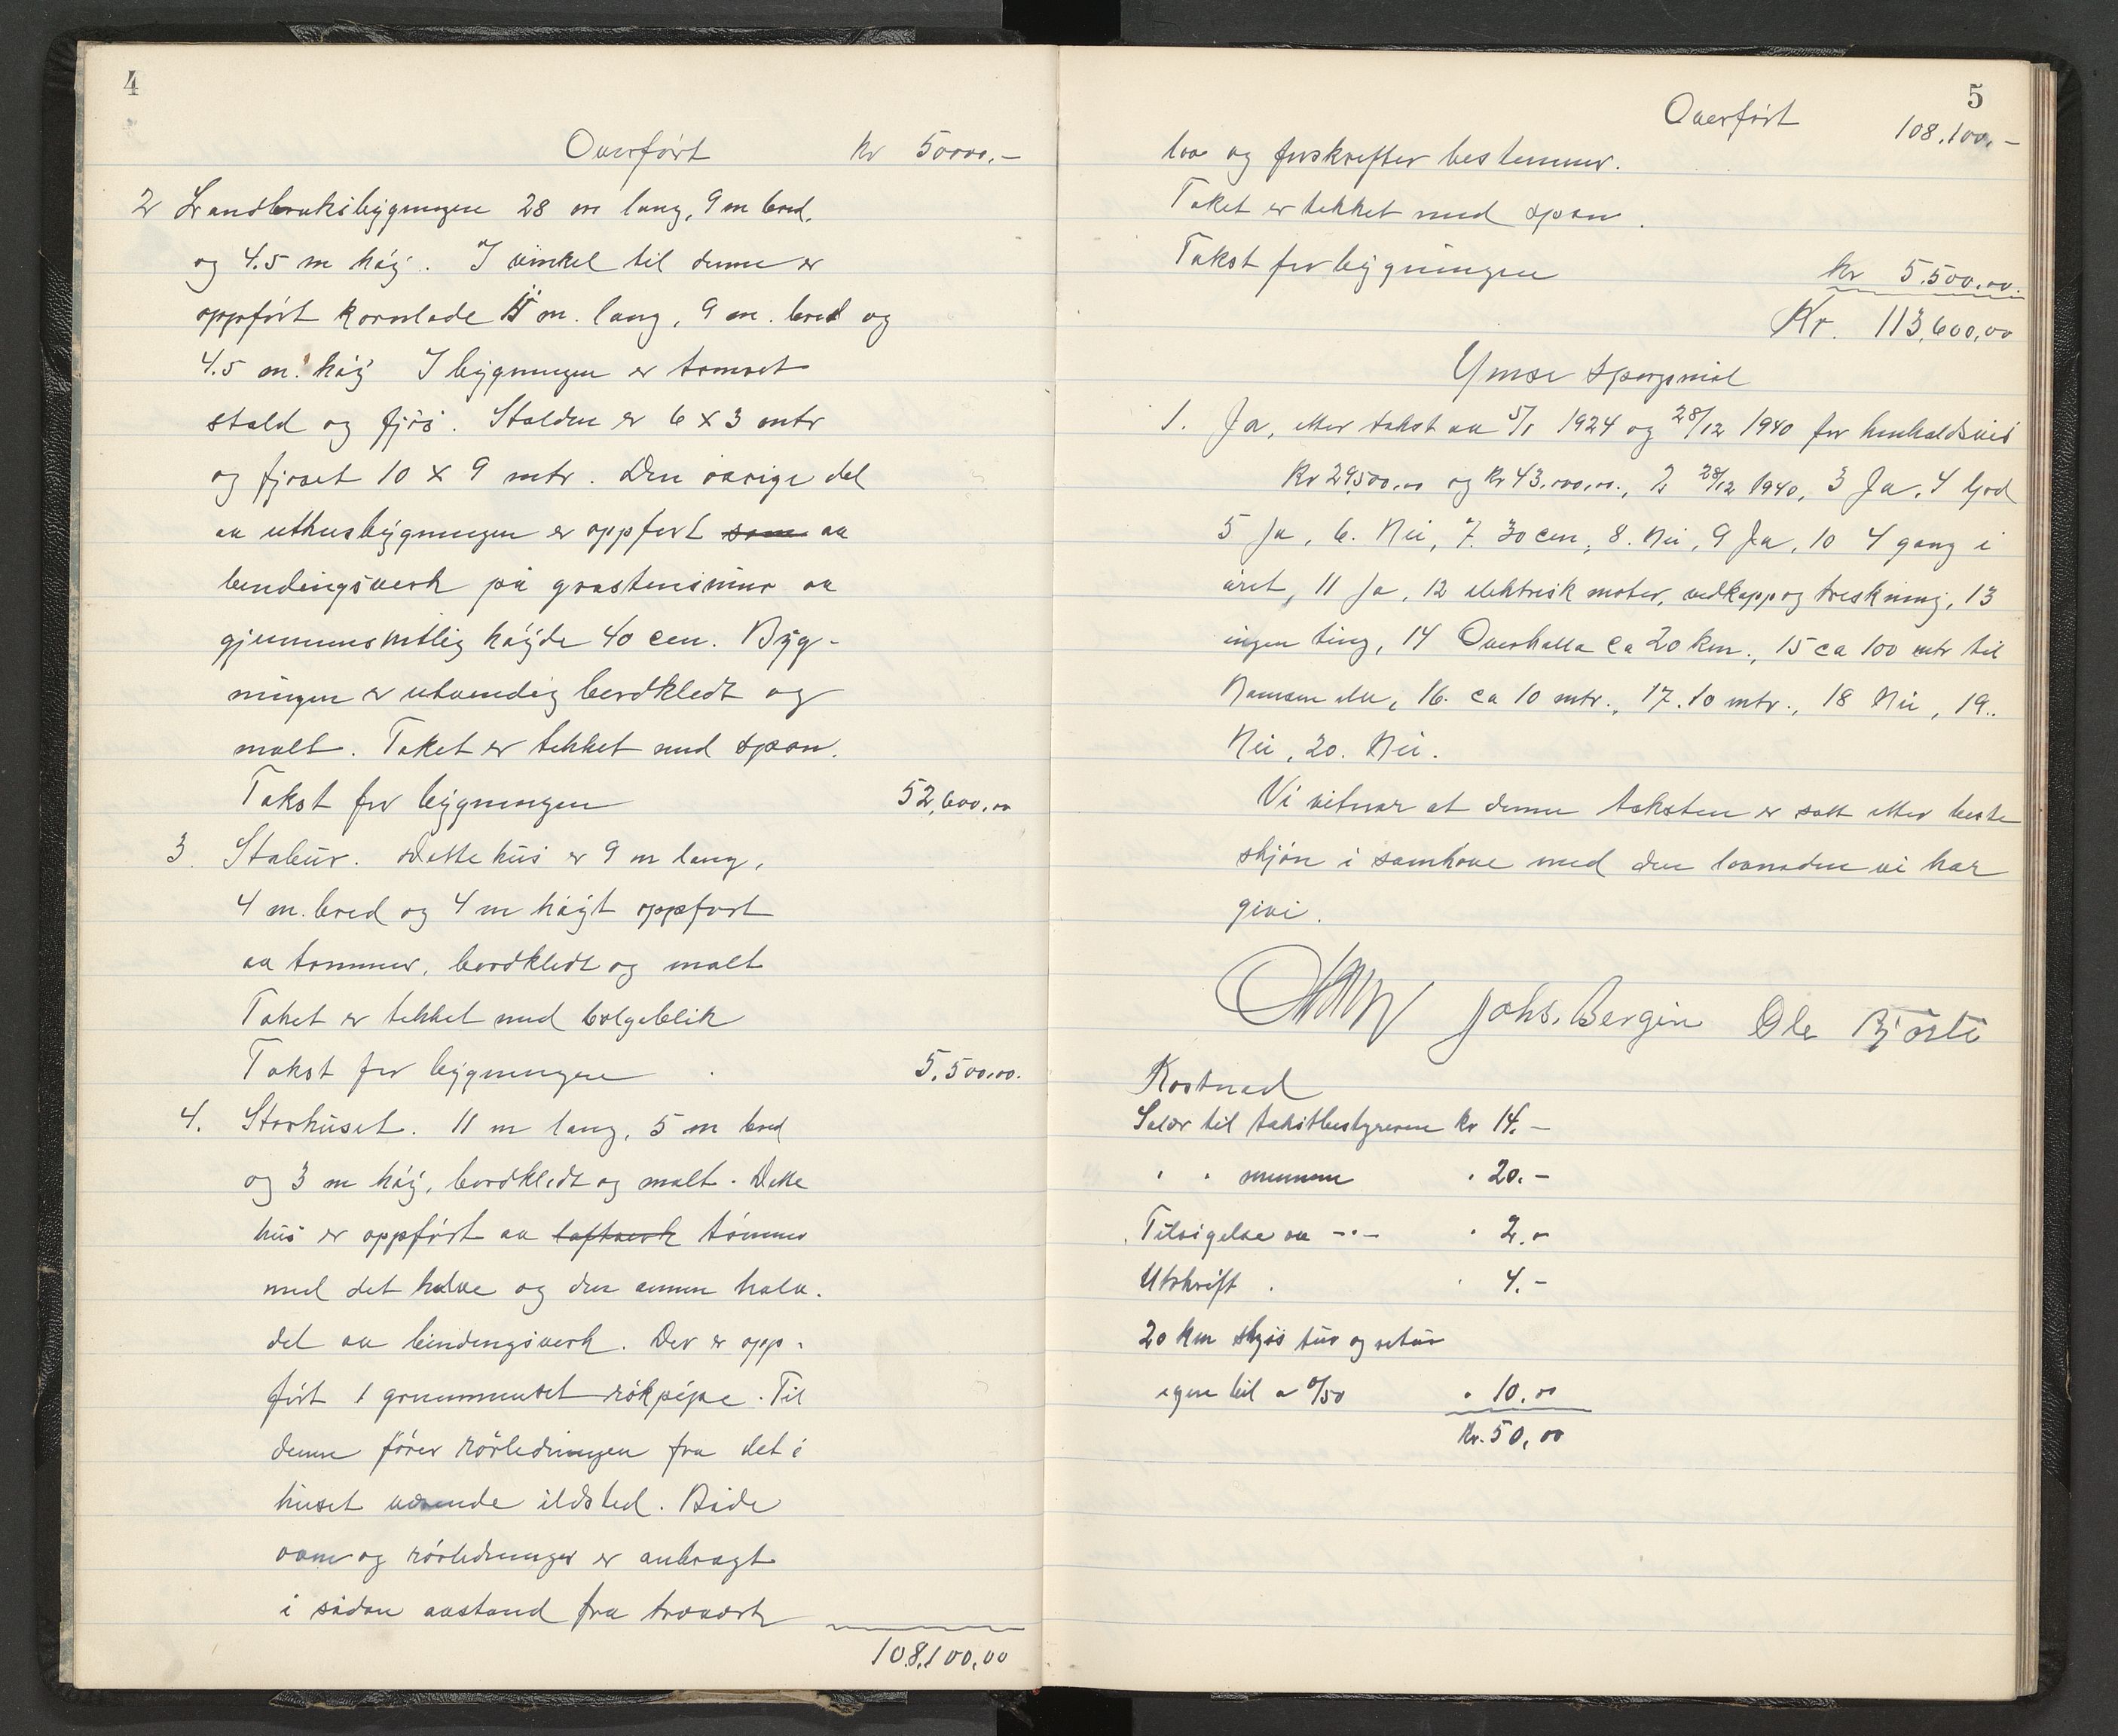 4
Overført kr 50000.-
2 Landbruksbygningen 28 m lang, 9 m bred,
og 4.5 m høy. I vinkel til denne er
oppført kornlade m. lang, 9 m. bred og
4.5 m. høy I bygningen er tømret
stald og fjøs. Stalden er 6 x 3 mtr
og fjøset 10 x 9 mtr. Den øvrige del
av uthusbygningen er oppført som av
bindingsverk på gråstensmur av
gjennemsnitlig høyde 40 cm. Byg-
ningen er utvendig bordkledt og
malt. Taket er tekket med spon.
Takst for bygningen 52,600,00
3. Stabur. Dette hus er 9 m lang,
4 m. bred og 4 m høyt oppført
av tømmer, bordkledt og malt
Taket er tekket med bølgeblik
Takst for bygningen 5.500.00.
4. Storhuset. 11 m lang, 5 m bred
og 3 m høy, bordkledt og malt. Dette
hus er oppført av laftverk tømmer
med det halve og den annen halv.
del av bindingsverk. Der er opp-
ført 1 grunnmuret rökpipe. Til
denne fører rörledningen fra det i
huset værende ildsted. Både
ovn og rörledninger er anbragt
i sådan avstand fra treverk
108,100,00
5
Overført 108.100.-
lov og forskrifter bestemmer.
Taket er tekket med spon.
Takst for bygningen kr 5.500.00.
Kr. 113,600,00
Ymse spørgsmål
1. Ja, etter takst av 5/1 1924 og 28/12 1940 for henholdsvis
Kr 29500,00 og kr 43.000,00., 2 28/12 1940, 3 Ja, 4 God
5 Ja, 6. Nei, 7. 30 cm, 8. Nei, 9 Ja, 10 4 gang i
året, 11 Ja, 12 elektrisk motor, vedkapp og treskning, 13
ingen ting, 14 Overhalla ca 20 km., 15 ca 100 mtr til
Namsen elv, 16. ca 10 mtr., 17. 10 mtr., 18 Nei, 19.
Nei, 20. Nei.
Vi vitnar at denne taksten er satt etter beste
skjøn i samhøve med den lovnaden vi har
givi.
Johs. Bergin Ole Bjørti
Kostnad
Salær til takstbestyreren kr 14.-
" " mennene " 20.-
Tilsigelse av -"- " 2.-
Utskrift. " 4.-
20 km skyss tur og retur
egen bil a 0/50 " 10.00
Kr. 50,00